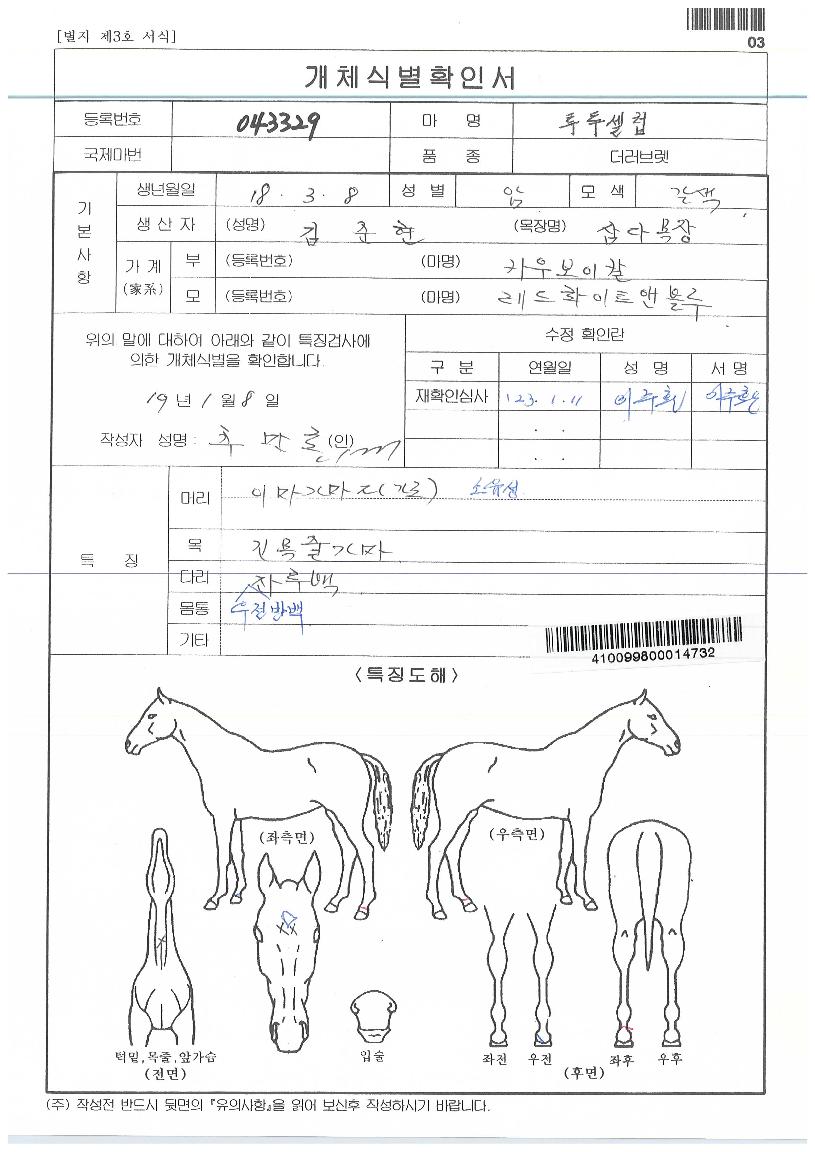 [별지 제3호 서식]
03
개체식별확인서
등록번호 043329 마 명 투투셀럽
국제마번 품 종 더러브렛
기본사항
생년월일 18 . 3 . 8 성 별 암 모 색 갈색
생 산 자 (성명) 김 준 현 (목장명) 삼다목장
가 계 (家系)
부 (등록번호) (마명) 카우보이칼
모 (등록번호) (마명) 레드화이트앤블루
위의 말에 대하여 아래와 같이 특징검사에
의한 개체식별을 확인합니다.
19 년 1 월 8 일
작성자 성명 : (인)
수정 확인란
구 분 연월일 성 명 서 명
재확인심사 '23. 1. 11
. .
. .
특 징
머리 이마가마 소유성
목 진목줄가마
다리 좌후백
몸통 우전방백
기타
410099800014732
<특징도해>
(좌측면) (우측면)
턱밑,목줄,앞가슴
(전면)
입술
좌전 우전 좌후 우후
(후면)
(주) 작성전 반드시 뒷면의 『유의사항』을 읽어 보신후 작성하시기 바랍니다.